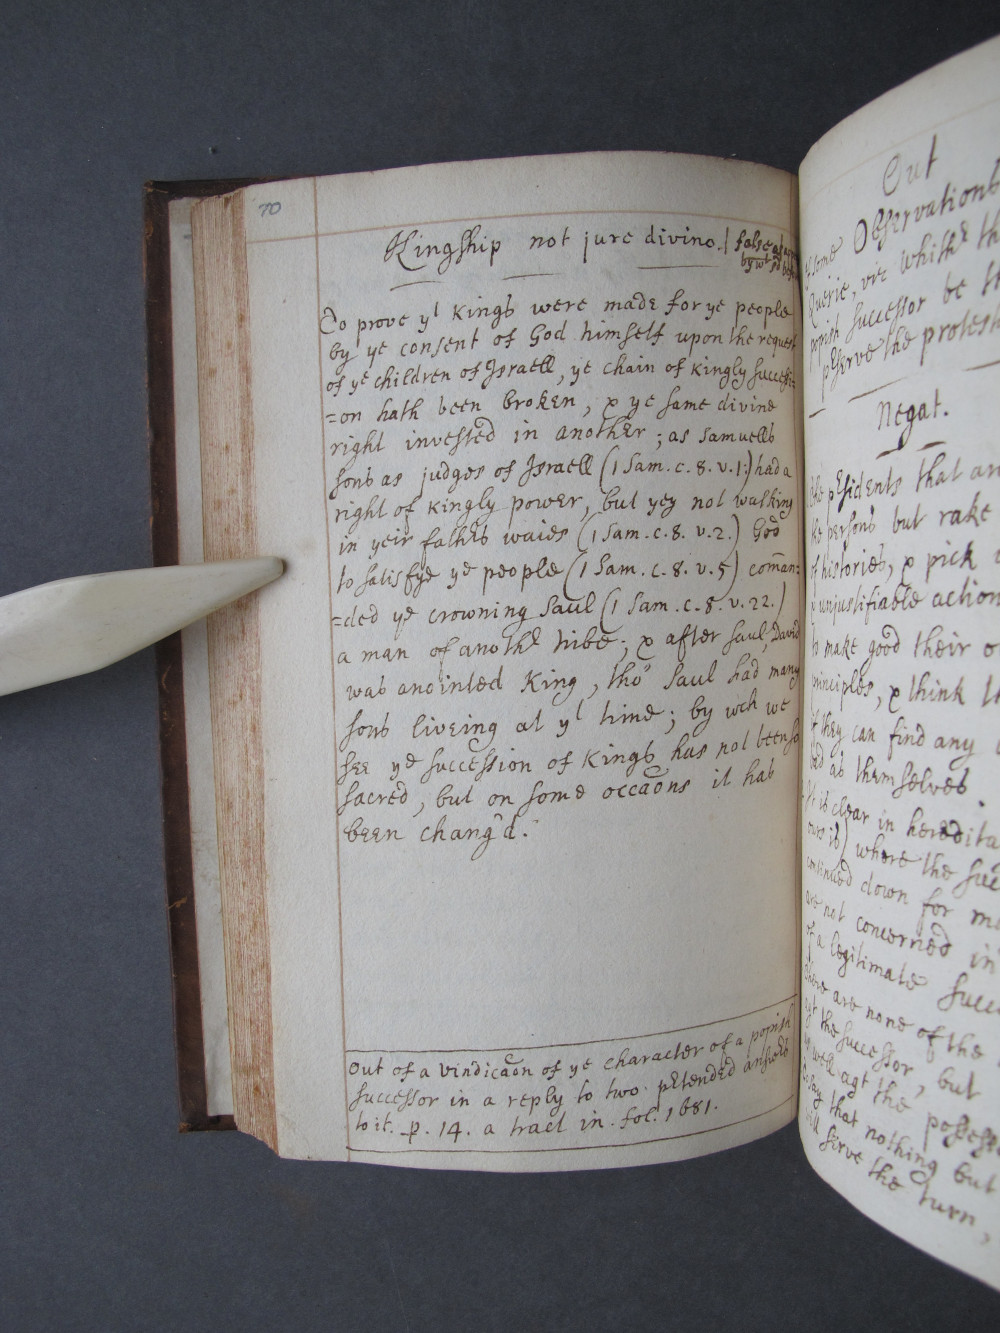 70
Kingship not jure divino. | false
by wt sd be
To prove yt Kings were made for ye people
by ye consent of God himself upon the request
of ye children of Israell, ye chain of Kingly successi
=on hath been broken, & ye same divine
right invested in another; as Samuells
sons as judges of Israell (1 Sam. c. 8. v. 1.) had a
right of Kingly power, but yey not walking
in yeir fathers waies (1 Sam. c. 8. v. 2.) God
to satisfye ye people (1 Sam. c. 8. v. 5) com̄an=
=ded ye crowning Saul (1 Sam. c. 8. v. 22.)
a man of anothr tribe; & after Saul, David
was anointed King, tho' Saul had many
sons liveing at yt time; by wch we
see ye succession of Kings has not been so
sacred, but on some occāons it has
been chang'd.
Out of a vindicāon of ye character of a popish
successor in a reply to two pretended answers
to it. p. 14. a tract in. fol. 1681.
Out
of some Observations
Querie, viz whithr th
popish successor be
pserve the protest
Negat.
the psidents that
the persons but rake
of histories, & pick
& unjustifiable action
to make good their
principles, & think
if they can find any
bad as themselves.
It is clear in heredita
ours is) where the suc
continued down for
are not concerned in
of a legitimate succ
there are none of the
agt the successor, but
as well agt the possess
to say that nothing but
will serve the turn,